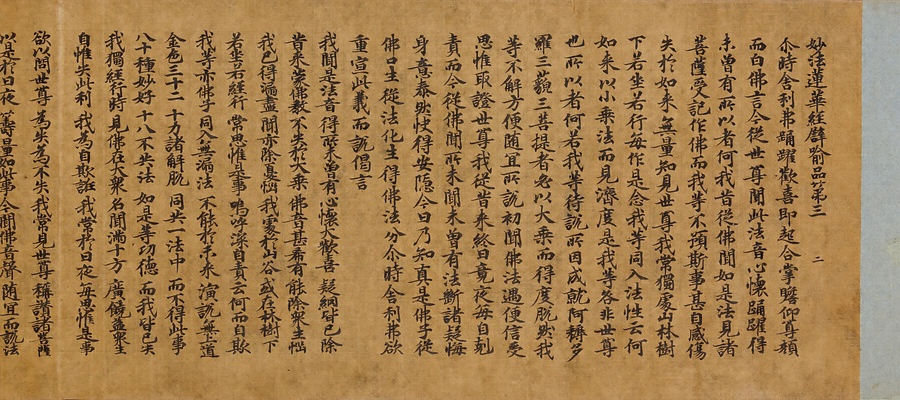 妙法蓮華經譬喻品第三　二
尒時舍利弗踊躍歡喜即起合掌瞻仰尊顏
而白佛言今從世尊聞此法音心懷踊躍得
未曾有所以者何我昔從佛聞如是法見諸
菩薩受記作佛而我等不預斯事甚自感傷
失於如來無量知見世尊我常獨處山林樹
下若坐若行每作是念我等同入法性云何
如來以小乘法而見濟度是我等咎非世尊
也所以者何若我等待說所因成就阿耨多
羅三藐三菩提者必以大乘而得度脫然我
等不解方便隨宜所說初聞佛法遇便信受
思惟取證世尊我從昔來終日竟夜每自剋
責而今從佛聞所未聞未曾有法斷諸疑悔
身意泰然快得安隱今日乃知真是佛子從
佛口生從法化生得佛法分尒時舍利弗欲
重宣此義而說偈言
我聞是法音　得所未曾有　心懷大歡喜　疑網皆已除
昔來蒙佛教　不失於大乘　佛音甚希有　能除眾生惱
我已得漏盡　聞亦除憂惱　我處於山谷　或在林樹下
若坐若經行　常思惟是事　嗚呼深自責　云何而自欺
我等亦佛子　同入無漏法　不能於未來　演說無上道
金色三十二　十力諸解脫　同共一法中　而不得此事
八十種妙好　十八不共法　如是等功德　而我皆已失
我獨經行時　見佛在大眾　名聞滿十方　廣饒益眾生
自惟失此利　我為自欺誑　我常於日夜　每思惟是事
欲以問世尊　為失為不失　我常見世尊　稱讚諸菩薩
以是於日夜　籌量如此事　今聞佛音聲　隨宜而說法